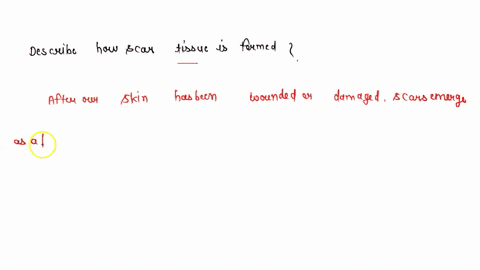 Describe how scar tissue is formed ?
After our skin has been wounded or damaged, scars emerge
as a